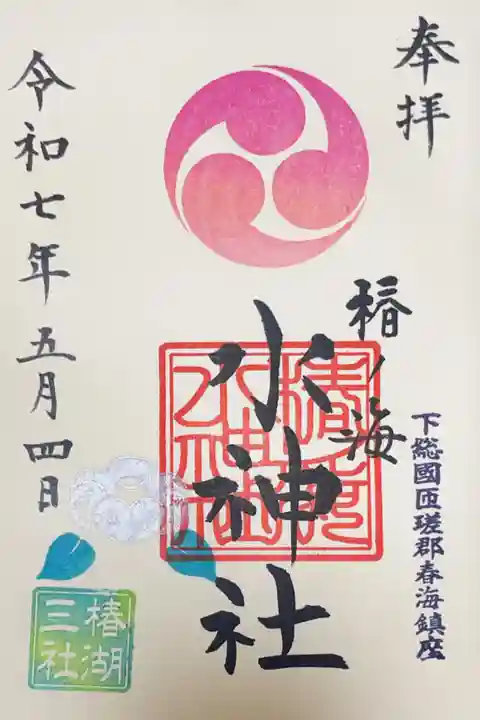 奉拝
下総國匝瑳郡春海鎮座
椿ノ海
水神社
椿湖
三社
令和七年五月四日